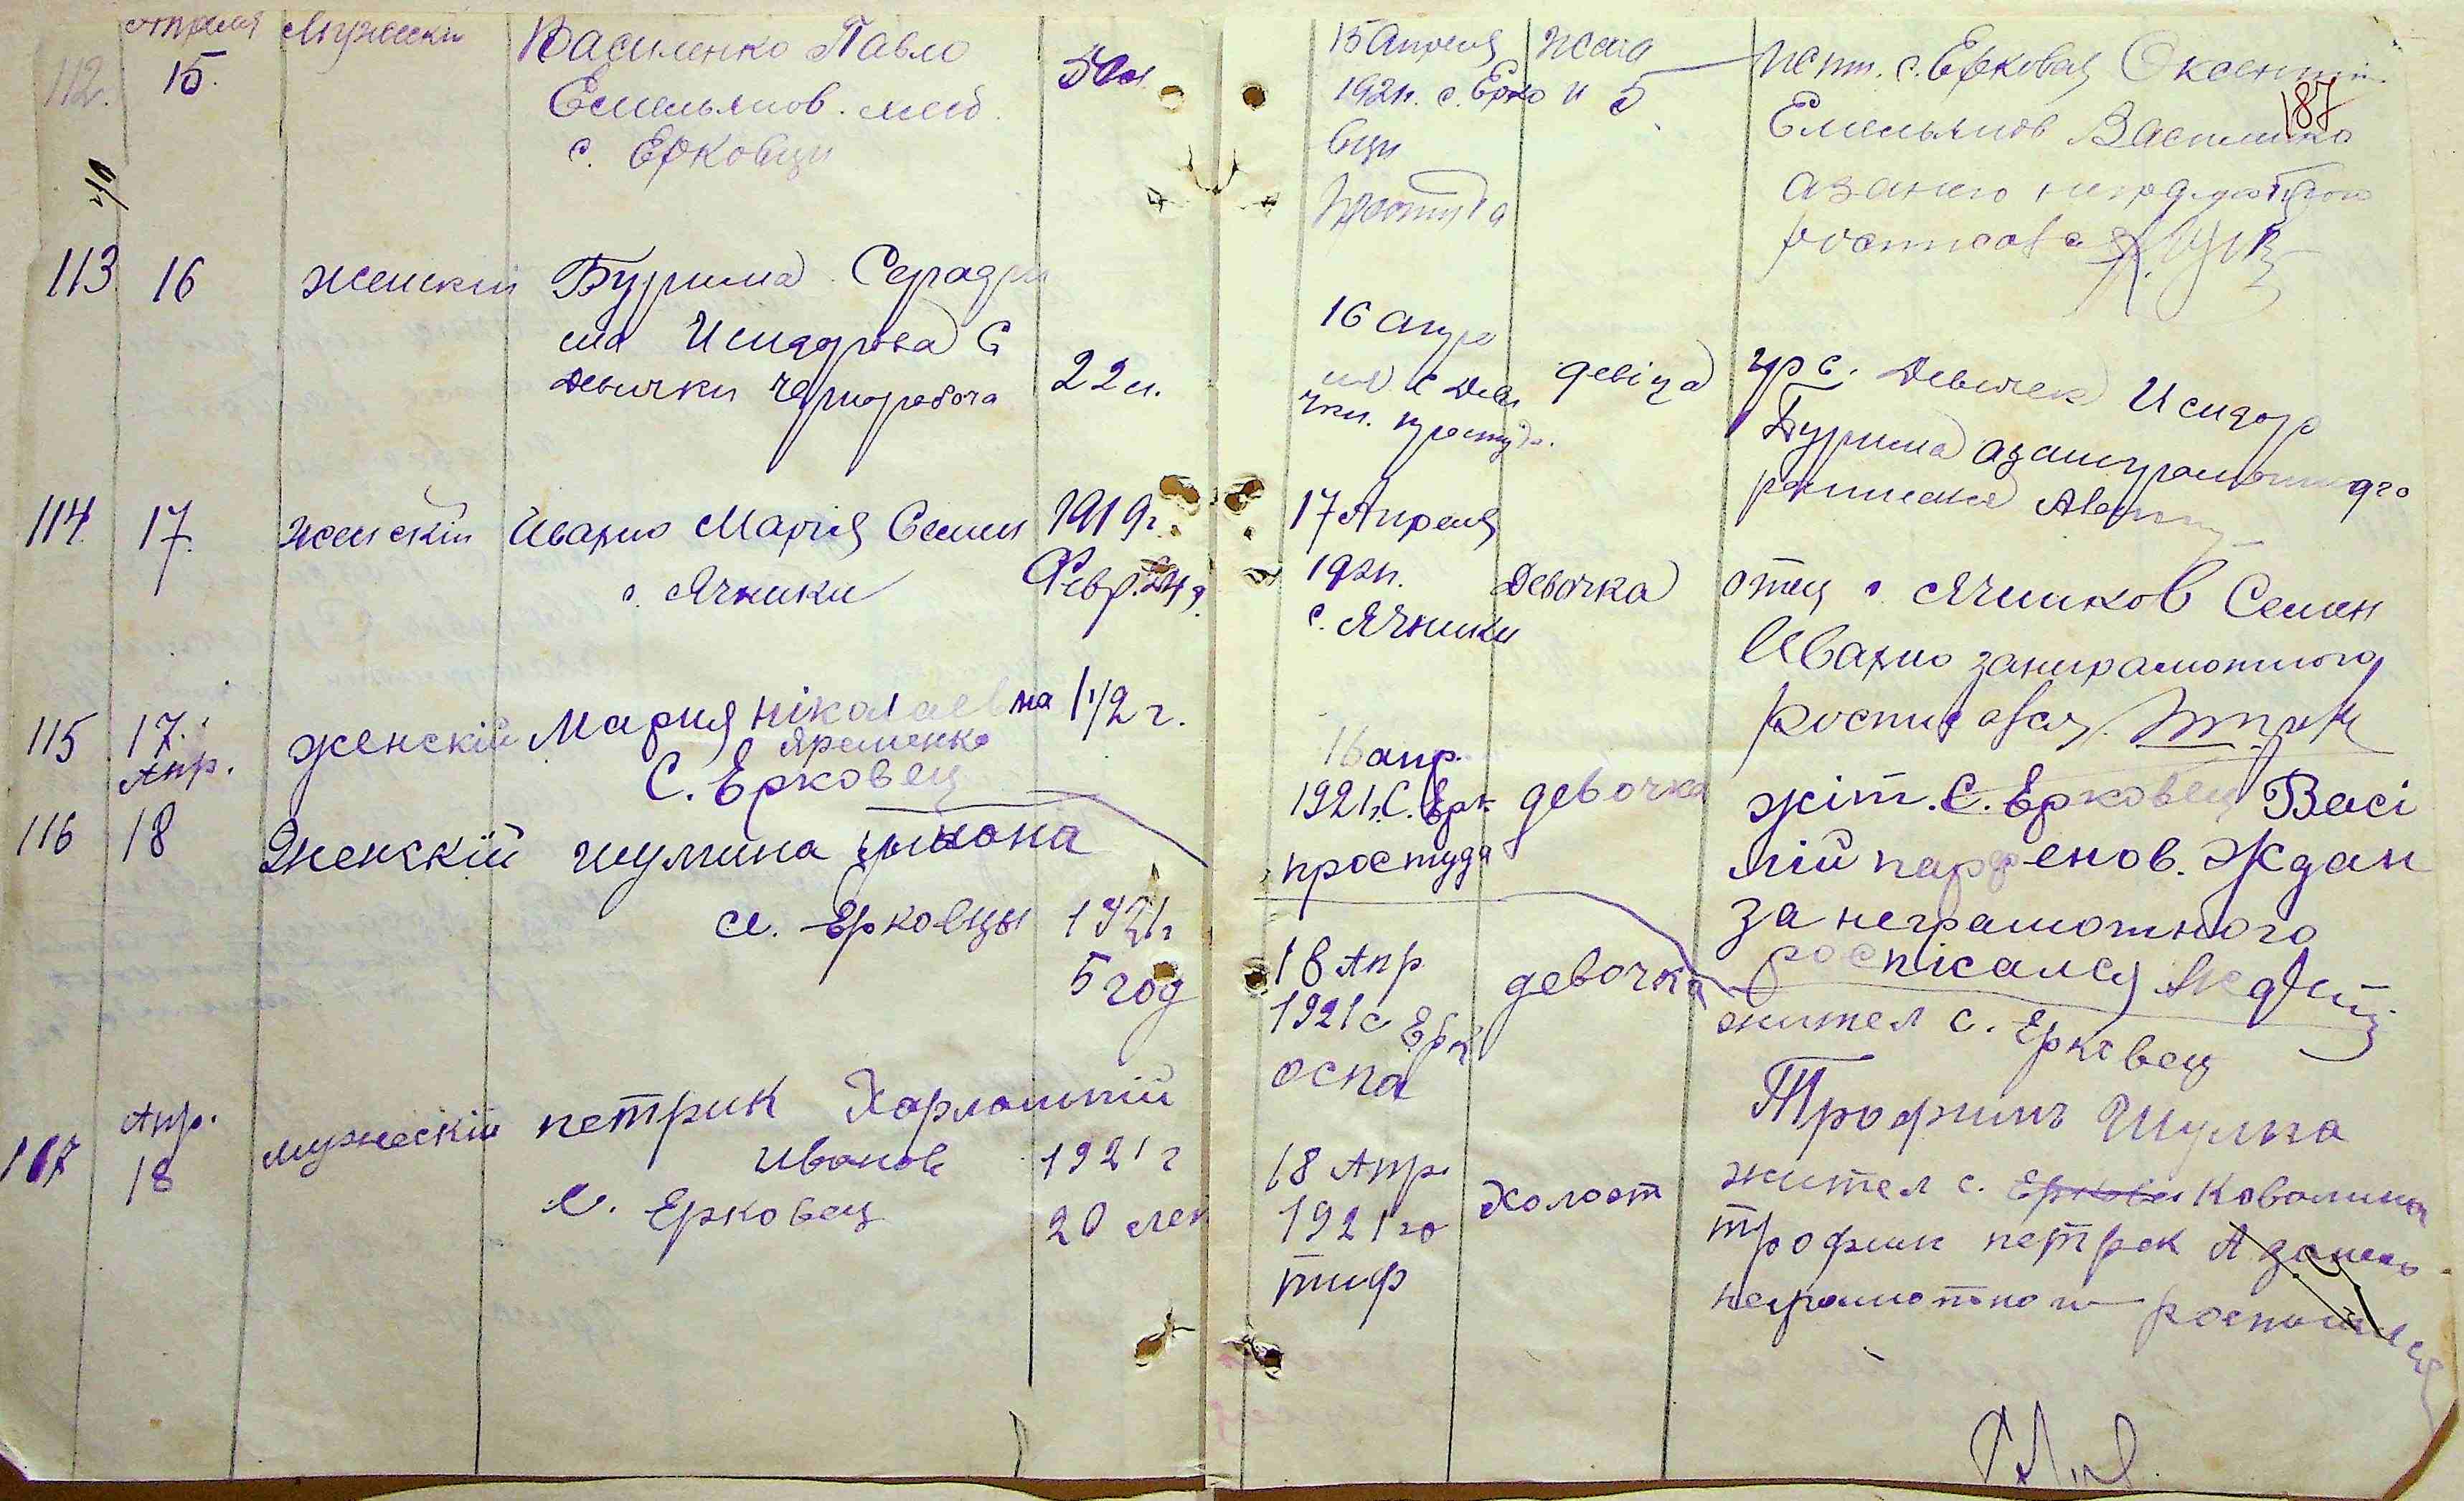 Апреля Мужески
112. 15.
Василенко Павло
Емельянов.
с. Ерковци
50л.
15 Апреля
1921г. с. Ерко
вци
Простуда
жена
и 5
жит. с. Ерковец Оксентий
187
Емельянов Василенко
а занего неграмотного
росписался
113 16 женский
Бурима Серафи
ма Исидорова С
Девички Чернорабоча
22 л.
16 апре
ля с Деви
чки. простуда.
девіца
гр с. Девичек Исидор
Бурима азанеграмотного
росписался
114 17. женскій
Иварно Марія Семен
с. Ячники
1919г.
Февр. 24 д.
17 Апреля
1921г.
с. Ячники
Девочка
отец с. Ячников Семен
Иварно занеграмотного
росписался
115 17. Апр. женскій
Мария ніколаевна
Яременко
С. Ерковец
1 1/2 г.
16 апр.
1921г. С. Ерк
простуда
девочка
жіт. С. Ерковец Васі
лій парфенов. Ждан
за неграмотного
роспісался
116 18 Женскій
шулина
с. Ерковцы
1921г
5 год
18 Апр
1921 с Ерк
оспа
девочка
жител с. Ерковец
Трофимъ Шулга
117 Апр. 18 мужескій
петрик Харлампій
Иванов
с. Ерковец
1921 г
20 лет
18 Апр.
1921 го
тиф
Холост
жител с. Ерковец Ковалина
трофим петрек А занего
неграмотного росписался